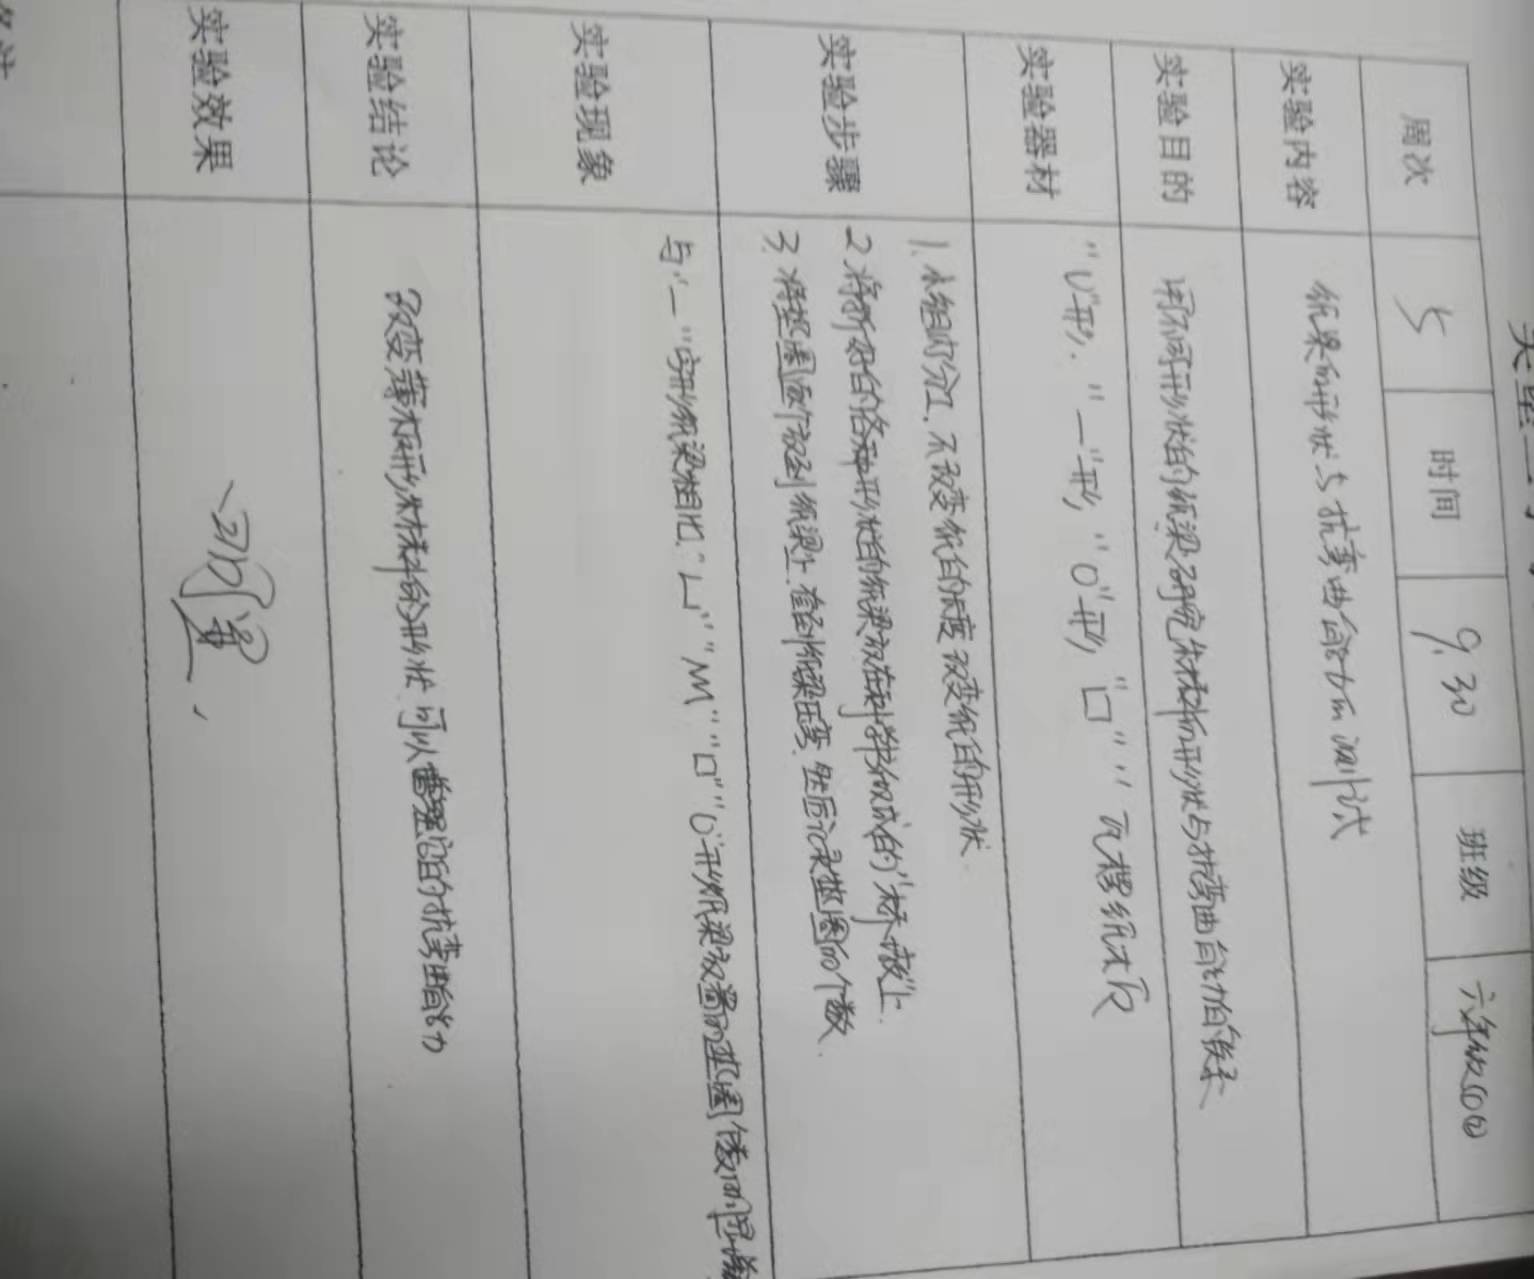 周次 5 时间 9.30 班级 六年级
实验内容 纸梁的形状与抗弯曲能力的测试
实验目的 用不同形状的纸梁研究材料的形状与抗弯曲能力的关系
实验器材 "U"形. "一"形, "O"形, "口" 瓦楞纸板
实验步骤 1. 小组内分工, 不改变纸的长度 改变纸的形状.
2. 将折好的各种形状的纸梁放在科学书做成的"桥墩"上.
3. 将垫圈逐个放到纸梁上. 直到纸梁压弯. 然后记录垫圈的个数.
实验现象 与"一"字形纸梁相比. "凵" "M" "口" "O"形纸梁放置的垫圈
实验结论 改变薄板形材料的形状 可以增强它的抗弯曲能力
实验效果